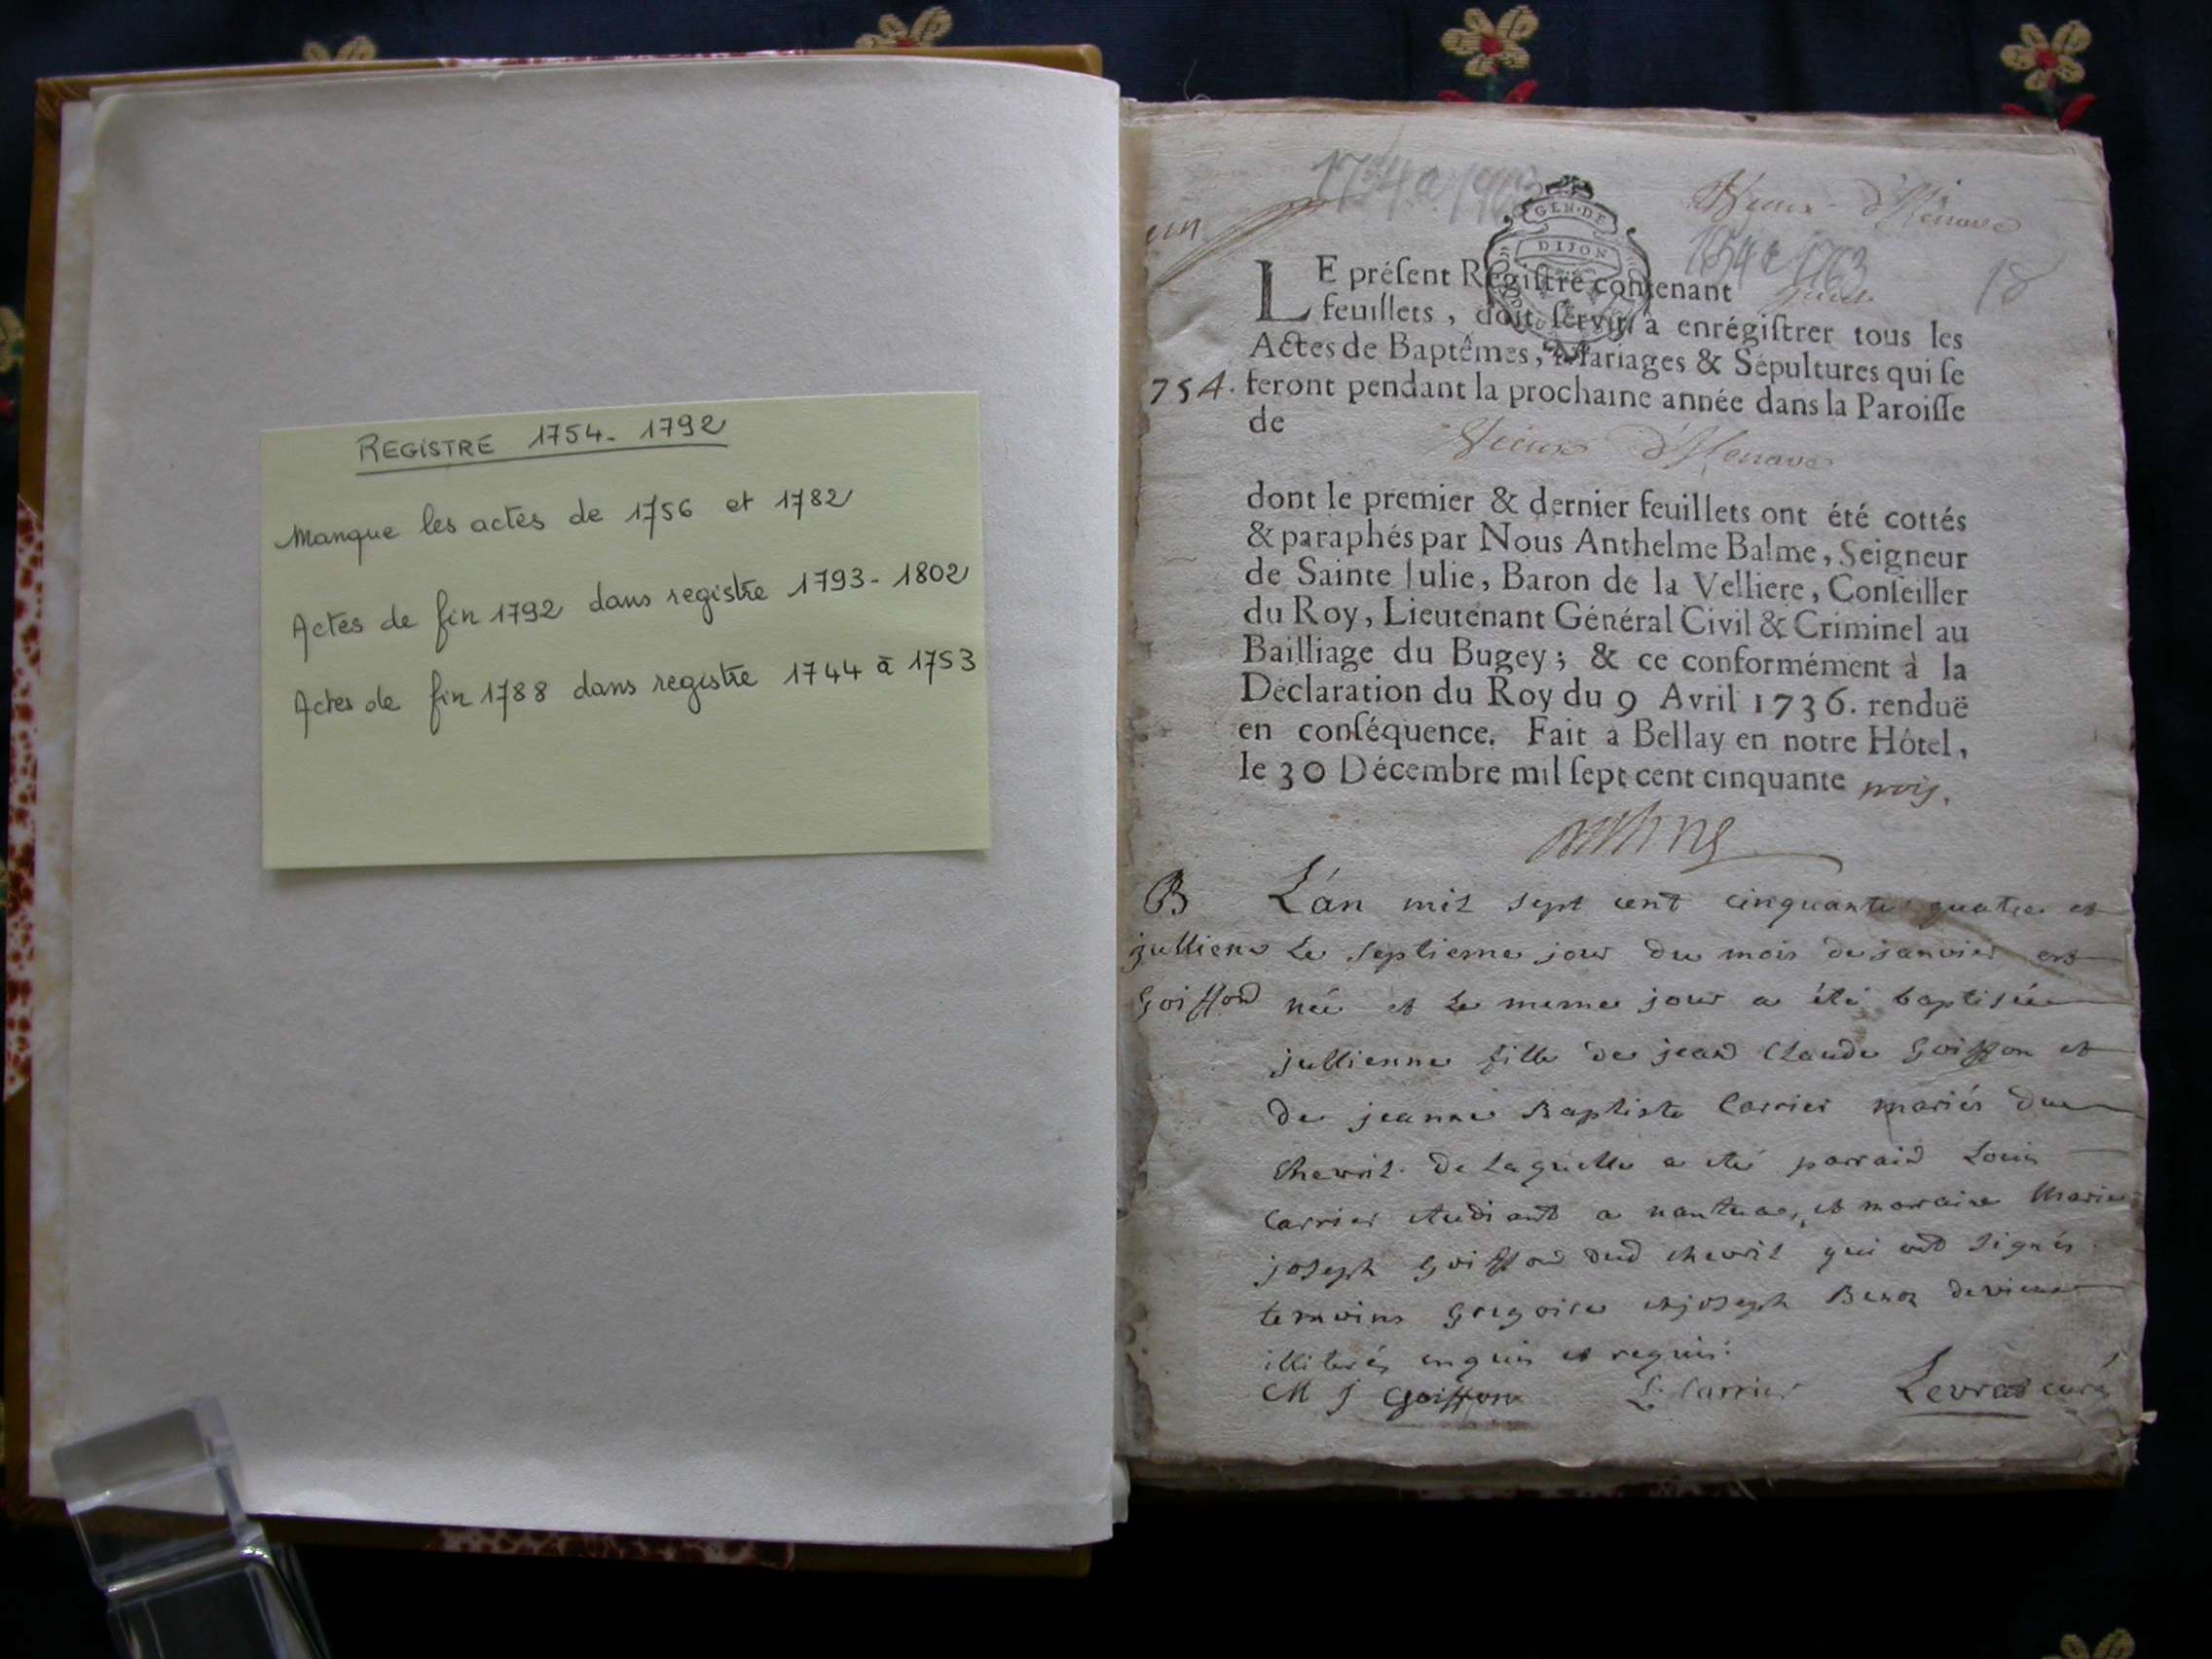 REGISTRE 1754-1792
Manque les actes de 1756 et 1782
Actes de fin 1792 dans registre 1793-1802
Actes de fin 1788 dans registre 1744 à 1753
1754 a 1763
GEN·DE
DIJON
1754 a 1763
18
LE préſent Regiſtre contenant
feuillets, doit ſervir à enrégiſtrer tous les
Actes de Baptêmes, Mariages & Sépultures qui ſe
754. feront pendant la prochaine année dans la Paroiſſe
de Vieux d'Izenave
dont le premier & dernier feuillets ont été cottés
& paraphés par Nous Anthelme Balme, Seigneur
de Sainte Julie, Baron de la Velliere, Conſeiller
du Roy, Lieutenant Général Civil & Criminel au
Bailliage du Bugey; & ce conformément à la
Déclaration du Roy du 9 Avril 1736. renduë
en conſéquence. Fait à Bellay en notre Hôtel,
le 30 Décembre mil ſept cent cinquante trois.
B L'an mil sept cent cinquante quatre et
jullienne Le septieme jour du mois de janvier est
Goiffon née et le meme jour a été baptisée
jullienne fille de jean Claude Goiffon et
de jeanne Baptiste Carrier mariés du
Chevril. de laquelle a été parrain Louis
Carrier etudiant a nantua, et marraine Marie
joseph Goiffon dud chevril qui ont signés
temoins gregoire et joseph Benoz de vieux
illiterés enquis et requis.
M J Goiffon L. Carrier Levrat curé